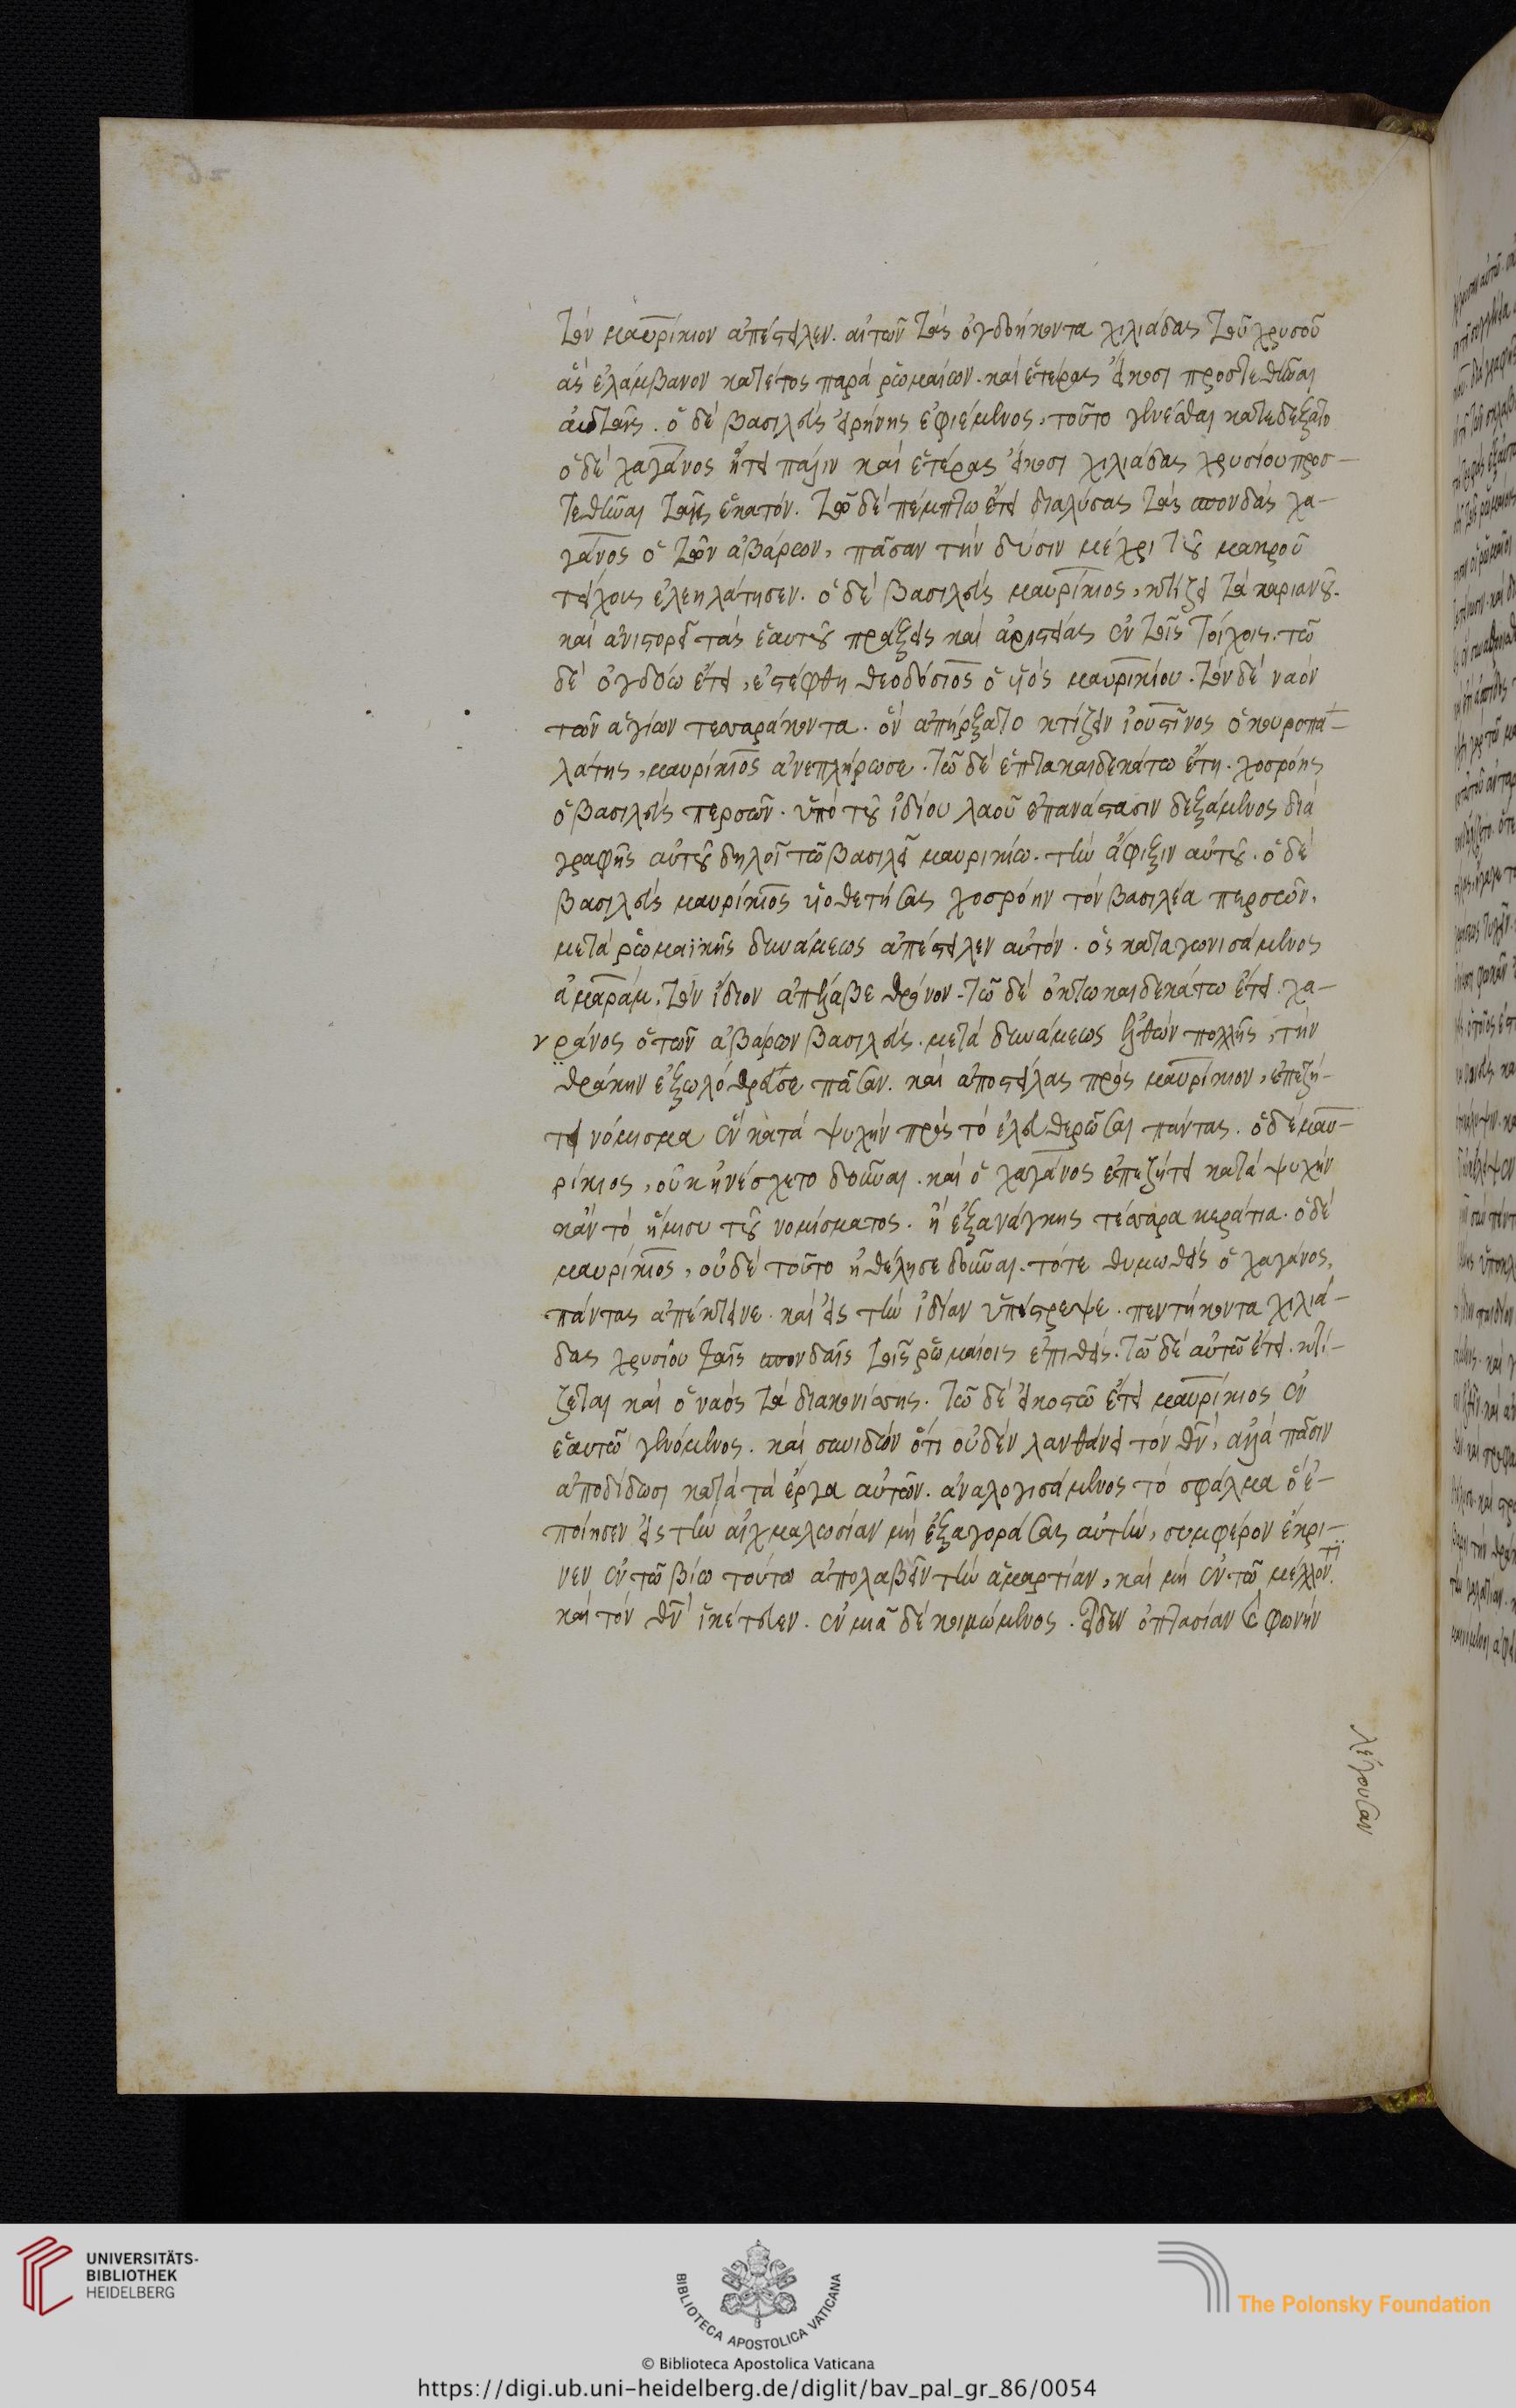 τὸν μαυρίκιον ἀπέστειλεν. αἰτῶν τὰς ὀγδοήκοντα χιλιάδας τοῦ χρυσοῦ
ἃς ἐλάμβανον κατέτος παρὰ ῥωμαίων. καὶ ἑτέρας εἴκοσι προστεθῆναι
αὐταῖς. ὁ δὲ βασιλεὺς εἰρήνης ἐφιέμενος, τοῦτο γενέσθαι κατεδέξατο
ὁ δὲ χαγάνος ᾔτει πάλιν καὶ ἑτέρας εἴκοσι χιλιάδας χρυσίου προσ-
τεθῆναι ταῖς ἑκατόν. τῷ δὲ πέμπτω ἔτει διαλύσας τὰς σπονδὰς χα-
γάνος ὁ τῶν ἀβάρων, πᾶσαν τὴν δύσιν μέχρι τοῦ μακροῦ
τείχους ἐλεηλάτησεν. ὁ δὲ βασιλεὺς μαυρίκιος, κτίζει τὰ καριανοῦ.
καὶ ἀνιστορεῖ τὰς ἑαυτοῦ πράξεις καὶ ἀριστείας ἐν τοῖς τοίχοις. τῶ
δὲ ὀγδόω ἔτει, ἐστέφθη θεοδόσιος ὁ υἱὸς μαυρικίου. τὸν δὲ ναὸν
τῶν ἁγίων τεσσαράκοντα. ὃν ἀπήρξατο κτίζειν ἰουστῖνος ὁ κουροπα-
λάτης, μαυρίκιος ἀνεπλήρωσε. τῶ δὲ ἑπτακαιδεκάτω ἔτη. χοσρόης
ὁ βασιλεὺς περσῶν. ὑπὸ τοῦ ἰδίου λαοῦ ἐπανάστασιν δεξάμενος διὰ
γραφῆς αὐτοῦ δηλοῖ τῶ βασιλεῖ μαυρικίω. τὴν ἄφιξιν αὐτοῦ. ὁ δὲ
βασιλεὺς μαυρίκιος υἱοθετήσας χοσρόην τὸν βασιλέα περσῶν.
μετὰ ῥωμαϊκῆς δυνάμεως ἀπέστειλεν αὐτόν. ὃς καταγωνισάμενος
ἀμαράμ, τὸν ἴδιον ἀπέλαβε θρόνον. τῶ δὲ ὀκτωκαιδεκάτω ἔτει. χα-
γάνος ὁ τῶν ἀβάρων βασιλεὺς. μετὰ δυνάμεως ἐλθὼν πολλῆς, τὴν
θράκην ἐξωλόθρευσε πᾶσαν. καὶ ἀποστείλας πρὸς μαυρίκιον, ἐπεζή-
τει νόμισμα ἓν κατὰ ψυχὴν πρὸς τὸ ἐλευθερῶσαι πάντας. ὁ δὲ μαυ-
ρίκιος, οὐκ ἠνέσχετο δοῦναι. καὶ ὁ χαγάνος ἐπεζήτει κατὰ ψυχὴν
κἂν τὸ ἥμισυ τοῦ νομίσματος. ἢ ἐξανάγκης τέσσαρα κεράτια. ὁ δὲ
μαυρίκιος, οὐδὲ τοῦτο ἠθέλησε δοῦναι. τότε θυμωθεὶς ὁ χαγάνος,
πάντας ἀπέκτεινε. καὶ εἰς τὴν ἰδίαν ὑπέστρεψε. πεντήκοντα χιλιά-
δας χρυσίου ταῖς σπονδαῖς τοῖς ῥωμαίοις ἐπιθείς. τῶ δὲ αὐτῶ ἔτει. κτί-
ζεται καὶ ὁ ναὸς τὰ διακονίσσης. τῶ δὲ εἰκοστῶ ἔτει μαυρίκιος ἐν
ἑαυτῶ γενόμενος. καὶ συνιδὼν ὅτι οὐδὲν λανθάνει τὸν θν, ἀλλὰ πᾶσιν
ἀποδίδωσι κατὰ τὰ ἔργα αὐτῶν. ἀναλογισάμενος τὸ σφάλμα ὃ ἐ-
ποίησεν εἰς τὴν αἰχμαλωσίαν μὴ ἐξαγοράσας αὐτὴν, συμφέρον ἔκρι-
νεν ἐν τῶ βίω τούτω ἀπολαβεῖν τὴν ἁμαρτίαν, καὶ μὴ ἐν τῶ μέλλοντι.
καὶ τὸν θν ἱκέτευεν. ἐν μιᾶ δὲ κοιμώμενος. εἶδεν ὀπτασίαν καὶ φωνὴν
λέγουσαν
UNIVERSITÄTS-
BIBLIOTHEK
HEIDELBERG
BIBLIOTECA APOSTOLICA VATICANA
The Polonsky Foundation
© Biblioteca Apostolica Vaticana
https://digi.ub.uni-heidelberg.de/diglit/bav_pal_gr_86/0054